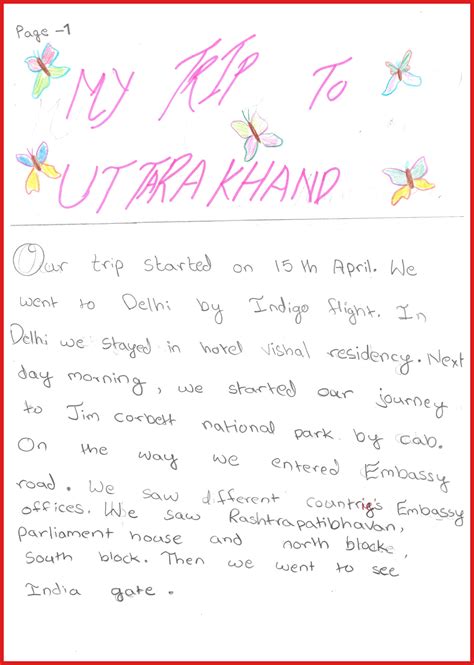 Page -1
MY TRIP TO
UTTARAKHAND
Our trip started on 15th April. We
went to Delhi by Indigo flight. In
Delhi we stayed in hotel vishal residency. Next
day morning, we started our journey
to Jim corbett national park by cab.
On the way we entered Embassy
road. We saw different countries Embassy
offices. We saw Rashtrapatibhavan,
Parliament house and north block,
South block. Then we went to see
India gate.